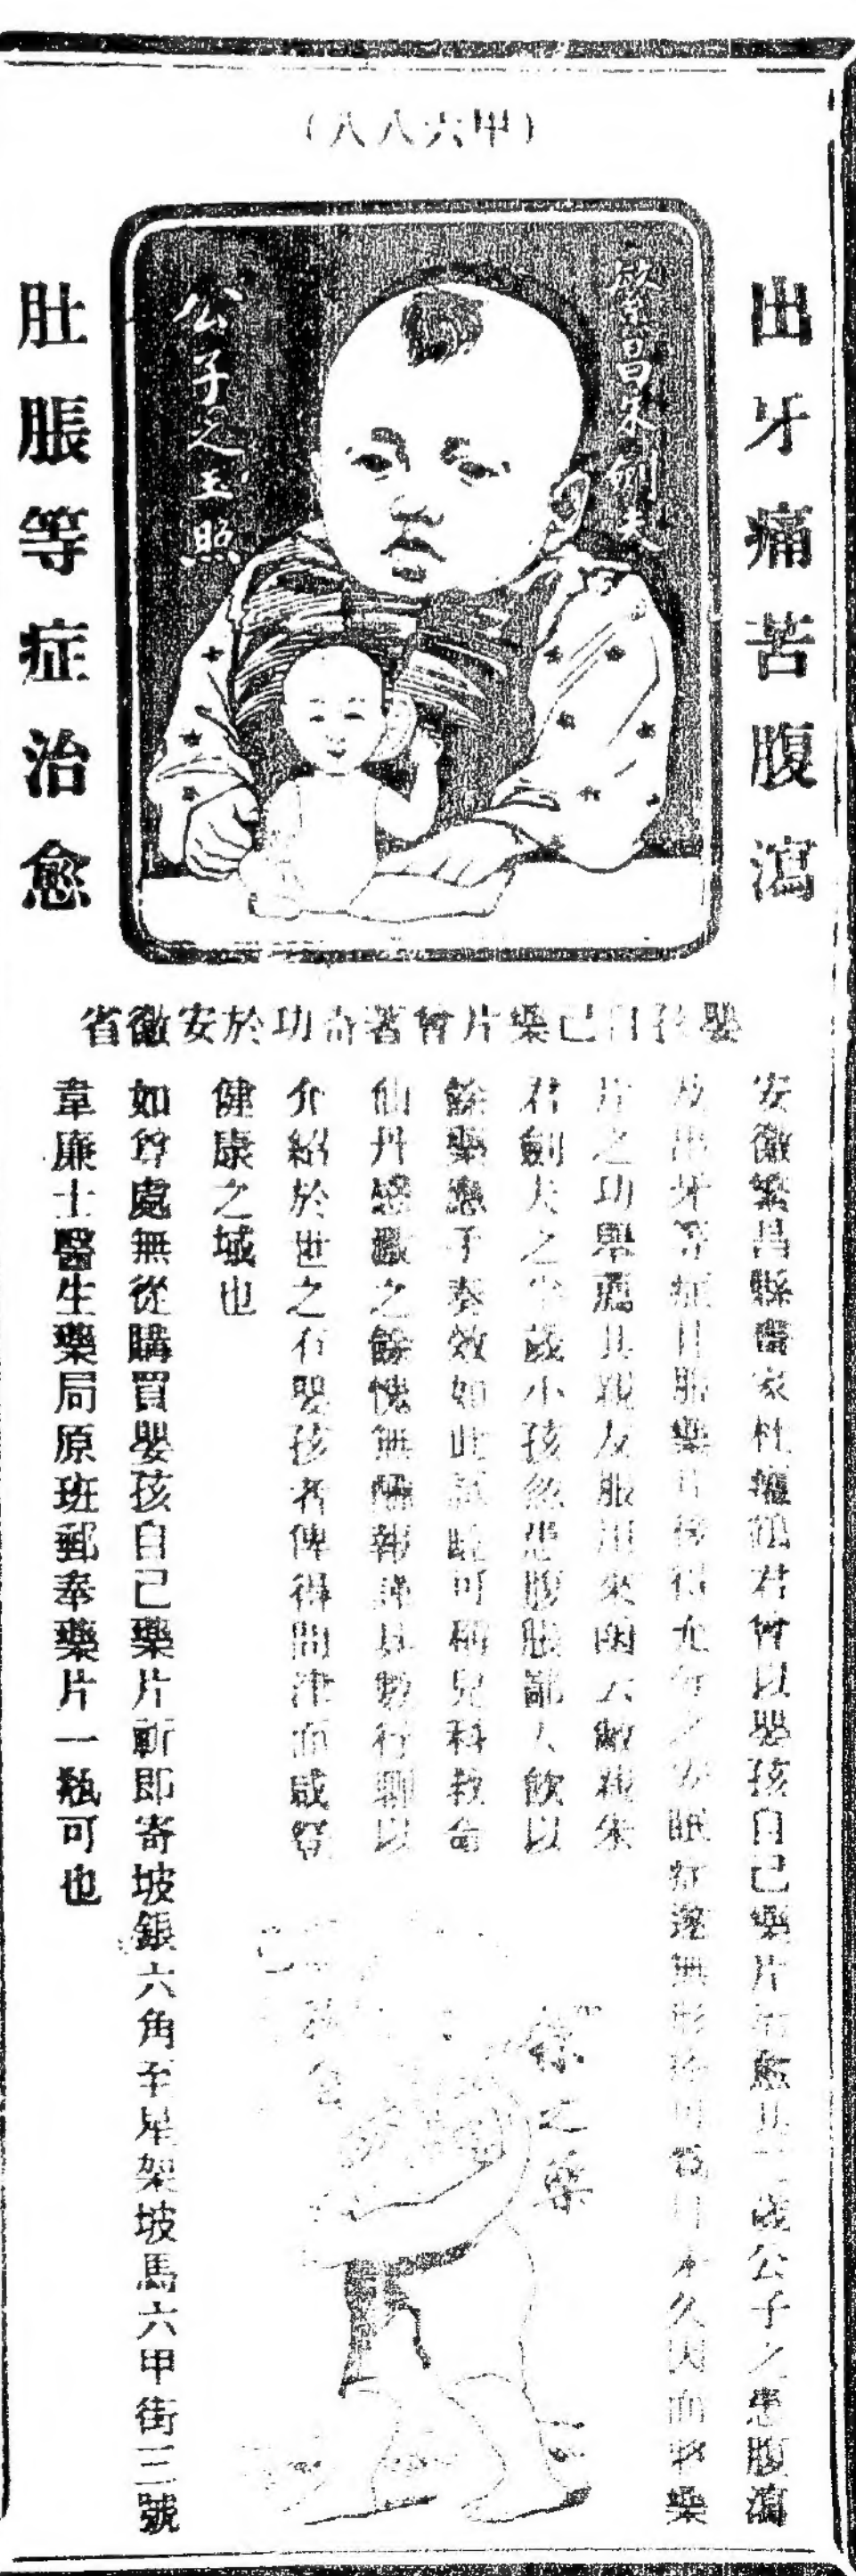 （甲六八八）
出牙痛苦腹瀉
肚脹等症治愈
繁昌朱劍夫
公子之玉照
嬰孩自己藥片曾著奇功於安徽省
安徽繁昌縣 家杜 鶴君曾以嬰孩自己藥片治愈其 歲公子之患腹瀉
及出牙等症 服藥片 得 之安眠症遂無形 未久因而將藥
片之功舉薦其親友服用來函云敝親朱
君劍夫之半歲小孩忽患腹脹鄙人飲以
餘藥惠予奏效如此 可稱兒科救命
仙丹感激之餘愧無 報 具數行聊以
介紹於世之有嬰孩者俾得問津而咸登
健康之域也
如尊處無從購買嬰孩自己藥片祈即寄坡銀六角至星架坡馬六甲街三號
韋廉士醫生藥局原班郵奉藥片一瓶可也
之藥